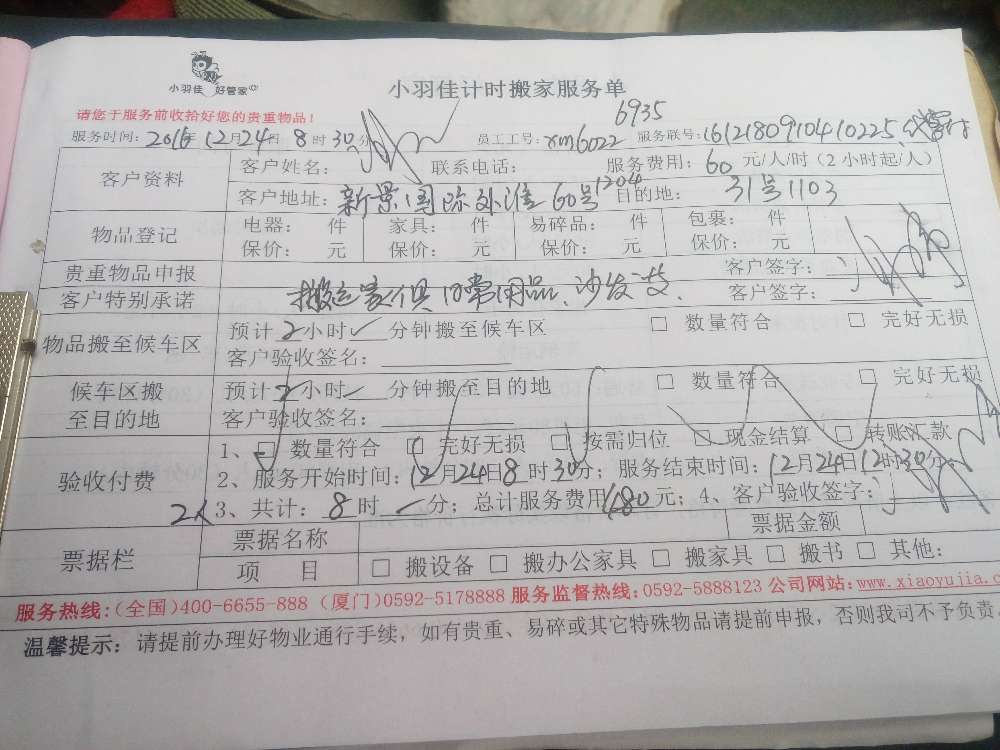 小羽佳 好管家
小羽佳计时搬家服务单
请您于服务前收拾好您的贵重物品！
6935
服务时间：2016年12月24日8时30分 员工工号：xm6022 服务联号：1612180910410225
客户资料
客户姓名： 联系电话： 服务费用：60元/人/时（2小时起/人）
客户地址：新景国际外滩60号1204 目的地：31号1103
物品登记
电器： 件 家具： 件 易碎品： 件 包裹： 件
保价： 元 保价： 元 保价： 元 保价： 元
贵重物品申报 客户签字：
客户特别承诺 搬运家俱日常用品、沙发 客户签字：
物品搬至候车区
预计2小时 分钟搬至候车区 □ 数量符合 □ 完好无损
客户验收签名：
候车区搬至目的地
预计2小时 分钟搬至目的地 □ 数量符合 □ 完好无损
客户验收签名：
验收付费
1、□ 数量符合 □ 完好无损 □ 按需归位 □ 现金结算 □ 转账汇款
2、服务开始时间：12月24日8时30分；服务结束时间：12月24日12时30分
2人 3、共计：8时 分；总计服务费用480元；4、客户验收签字：
票据栏
票据名称 票据金额
项 目 □ 搬设备 □ 搬办公家具 □ 搬家具 □ 搬书 □ 其他：
服务热线：(全国)400-6655-888 (厦门)0592-5178888 服务监督热线：0592-5888123 公司网站：www.xiaoyujia.c
温馨提示：请提前办理好物业通行手续，如有贵重、易碎或其它特殊物品请提前申报，否则我司不予负责